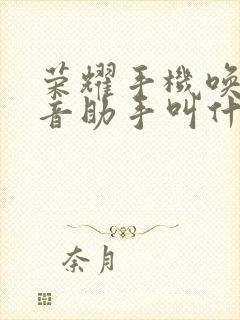 荣耀手機唤
音助手叫什
奈月